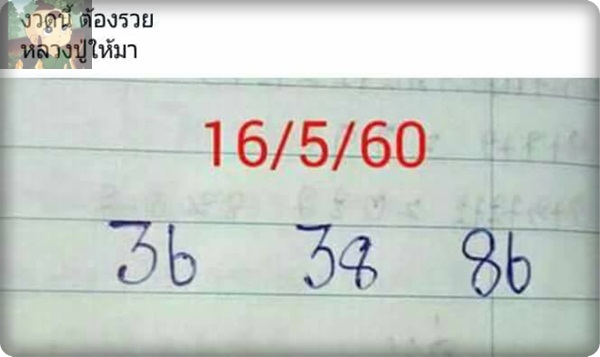 งวดนี้ ต้องรวย
หลวงปู่ให้มา
16/5/60
36 38 86